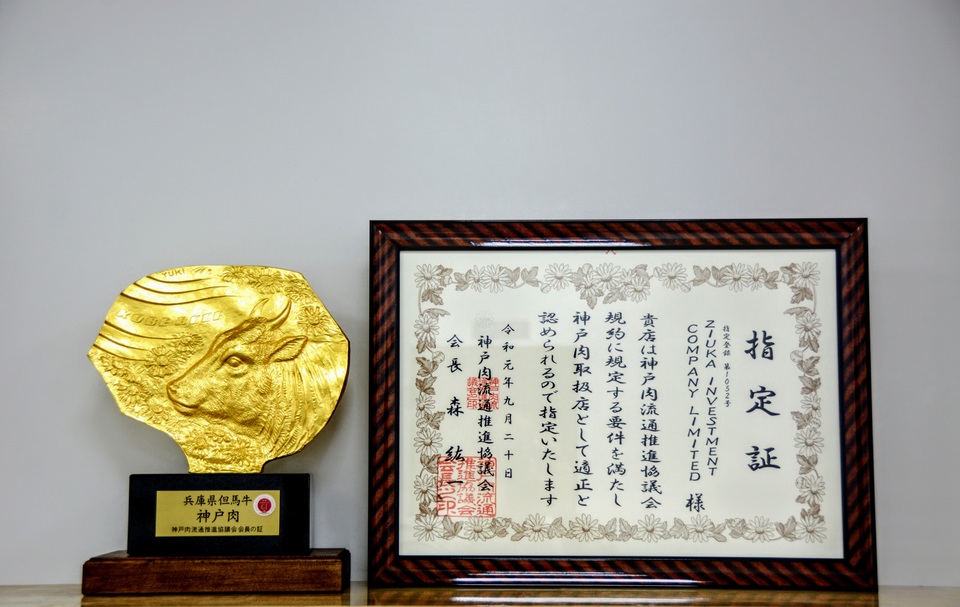 YUKI
兵庫県但馬牛
神戸肉
神戸肉流通推進協議会会員の証
指定証
指定登録 第1052号
ZIUKA INVESTMENT
COMPANY LIMITED 様
貴店は神戸肉流通推進協議会
規約に規定する要件を満たし
神戸肉取扱店として適正と
認められるので指定いたします
令和元年九月二十日
神戸肉流通推進協議会
会長 森 紘一